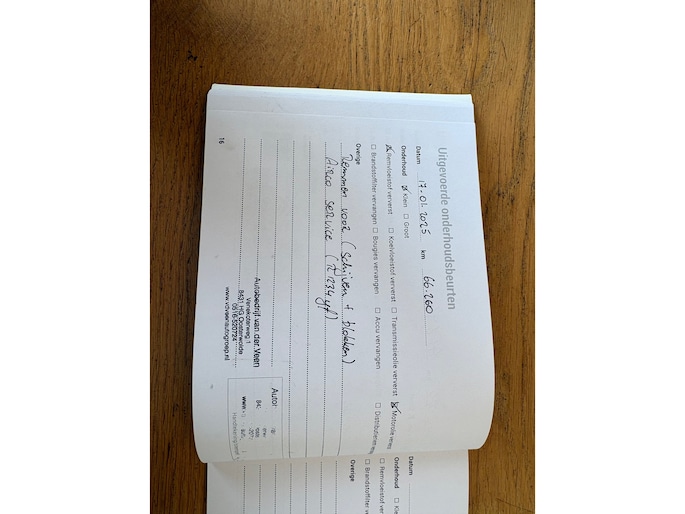 Uitgevoerde onderhoudsbeurten
Datum 17.01.2025 km 66.260
Onderhoud Klein Groot
Remvloeistof ververst Koelvloeistof ververst Transmissieolie ververst Motorolie ververs
Brandstoffilter vervangen Bougies vervangen Accu vervangen Distributieriem
Overige
Remmen voor (schijven + blokken)
Airco service (R1234yf)
Autobedrijf van der Veen
Venekoterweg 1
8431 HG Oosterwolde
0516-520724
www.vdveenautogroep.nl
Autor
843
www.
Handtekening/stempel
16
Datum
Onderhoud Kle
Remvloeistof ver
Brandstoffilter v
Overige